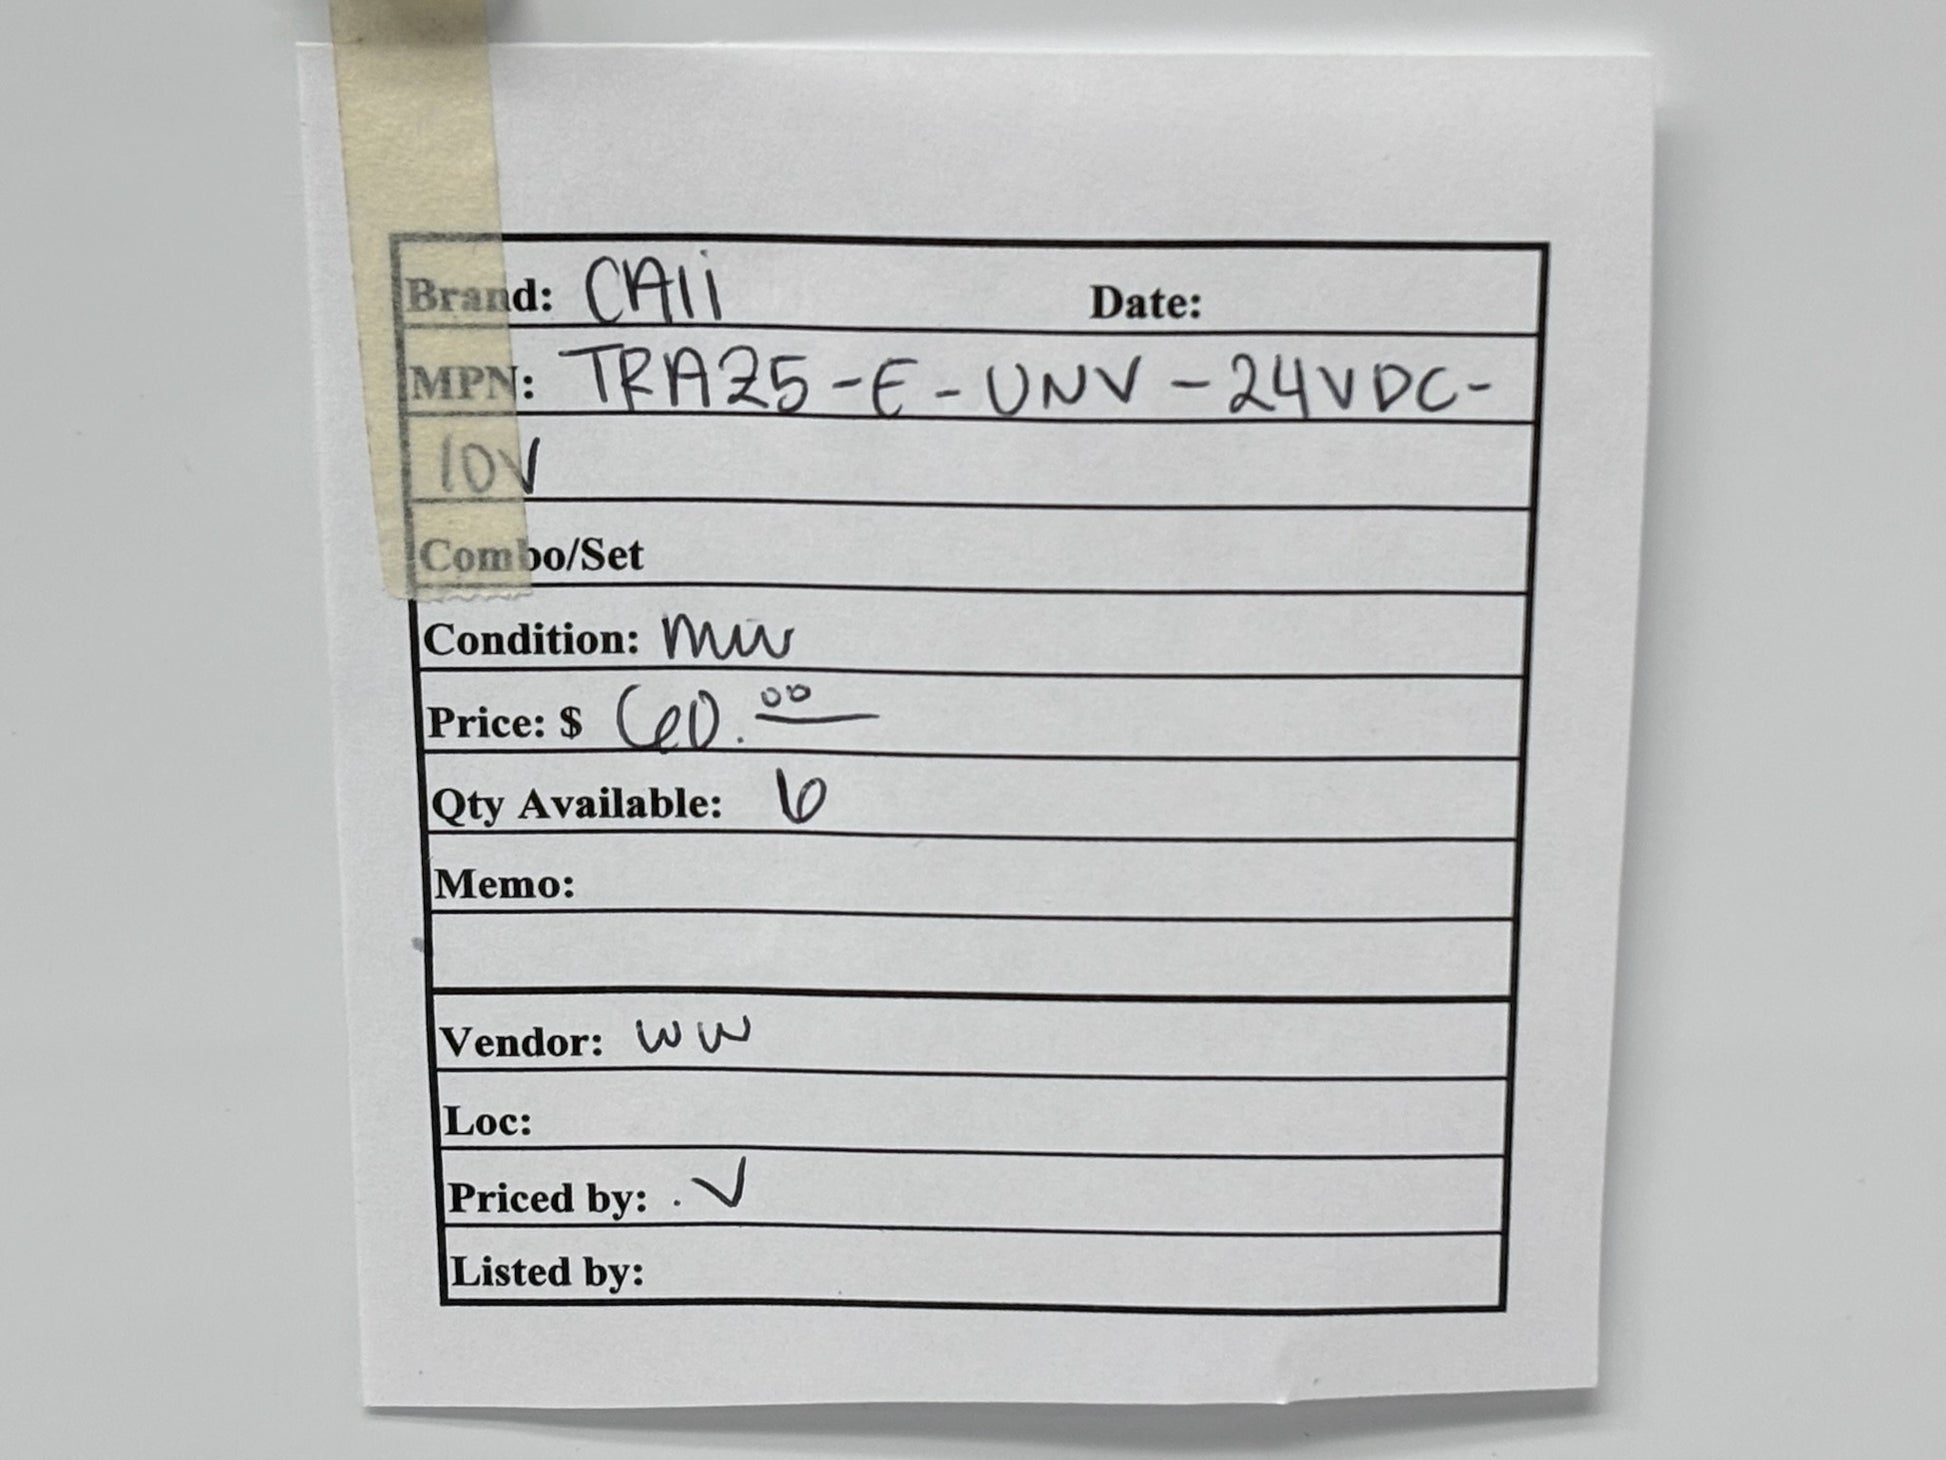 Brand: CAli Date:
MPN: TRAZ5-E-UNV-24VDC-
10V
Combo/Set
Condition:
Price: $ 60.00
Qty Available: 6
Memo:
Vendor: WW
Loc:
Priced by: . V
Listed by: